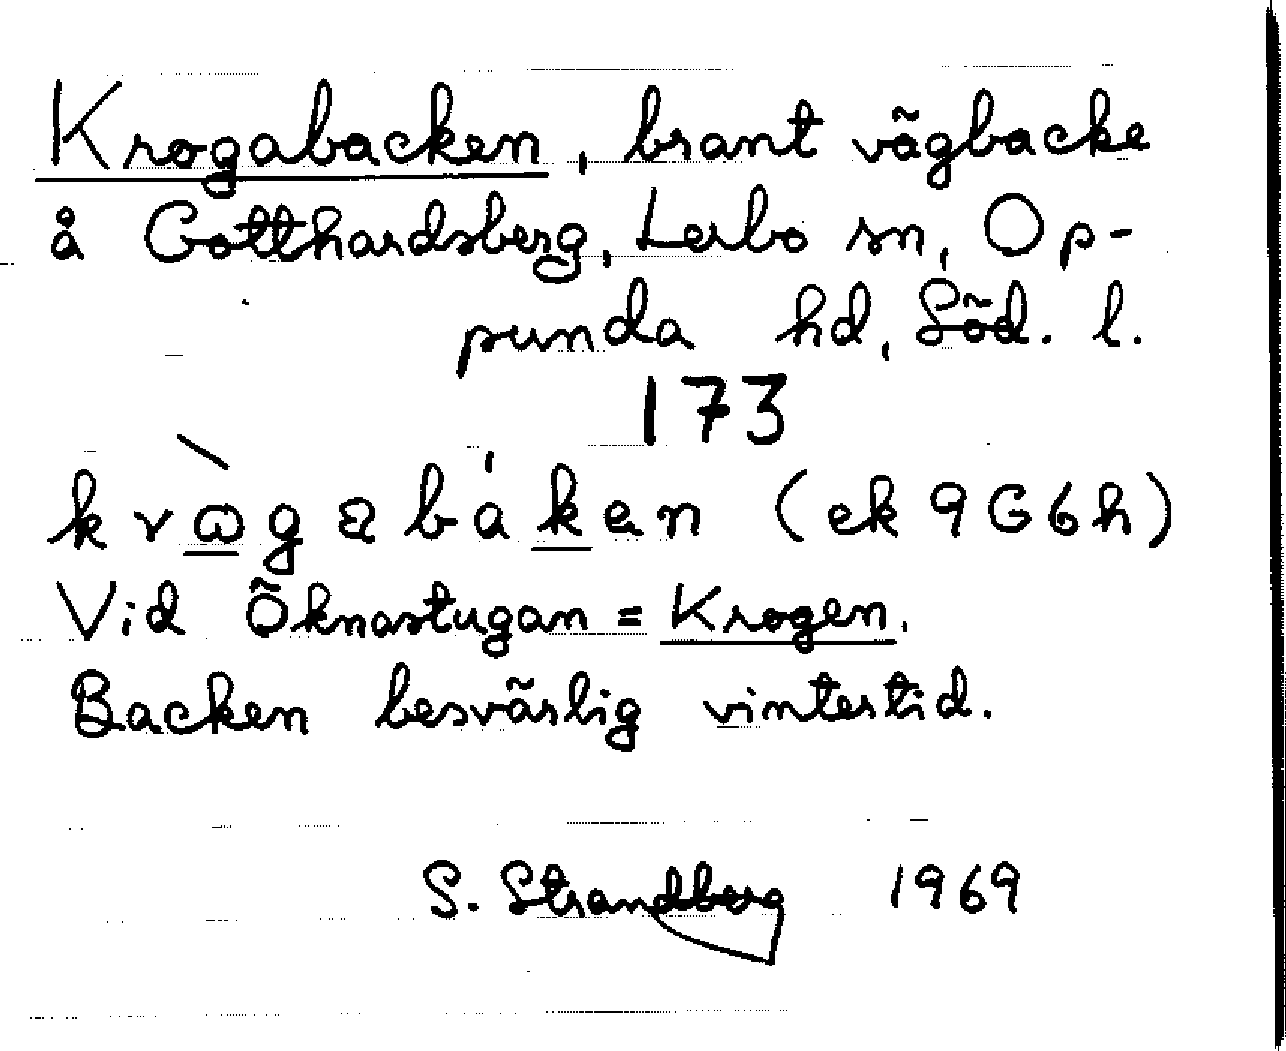 Krogabacken, brant vägbacke
å Gotthardsberg, Lerbo sn, Op-
punda hd, Söd. l.
173
krωgabaken (ek 9G6h)
Vid Öknastugan = Krogen.
Backen besvärlig vintertid.
S. Strandberg 1969